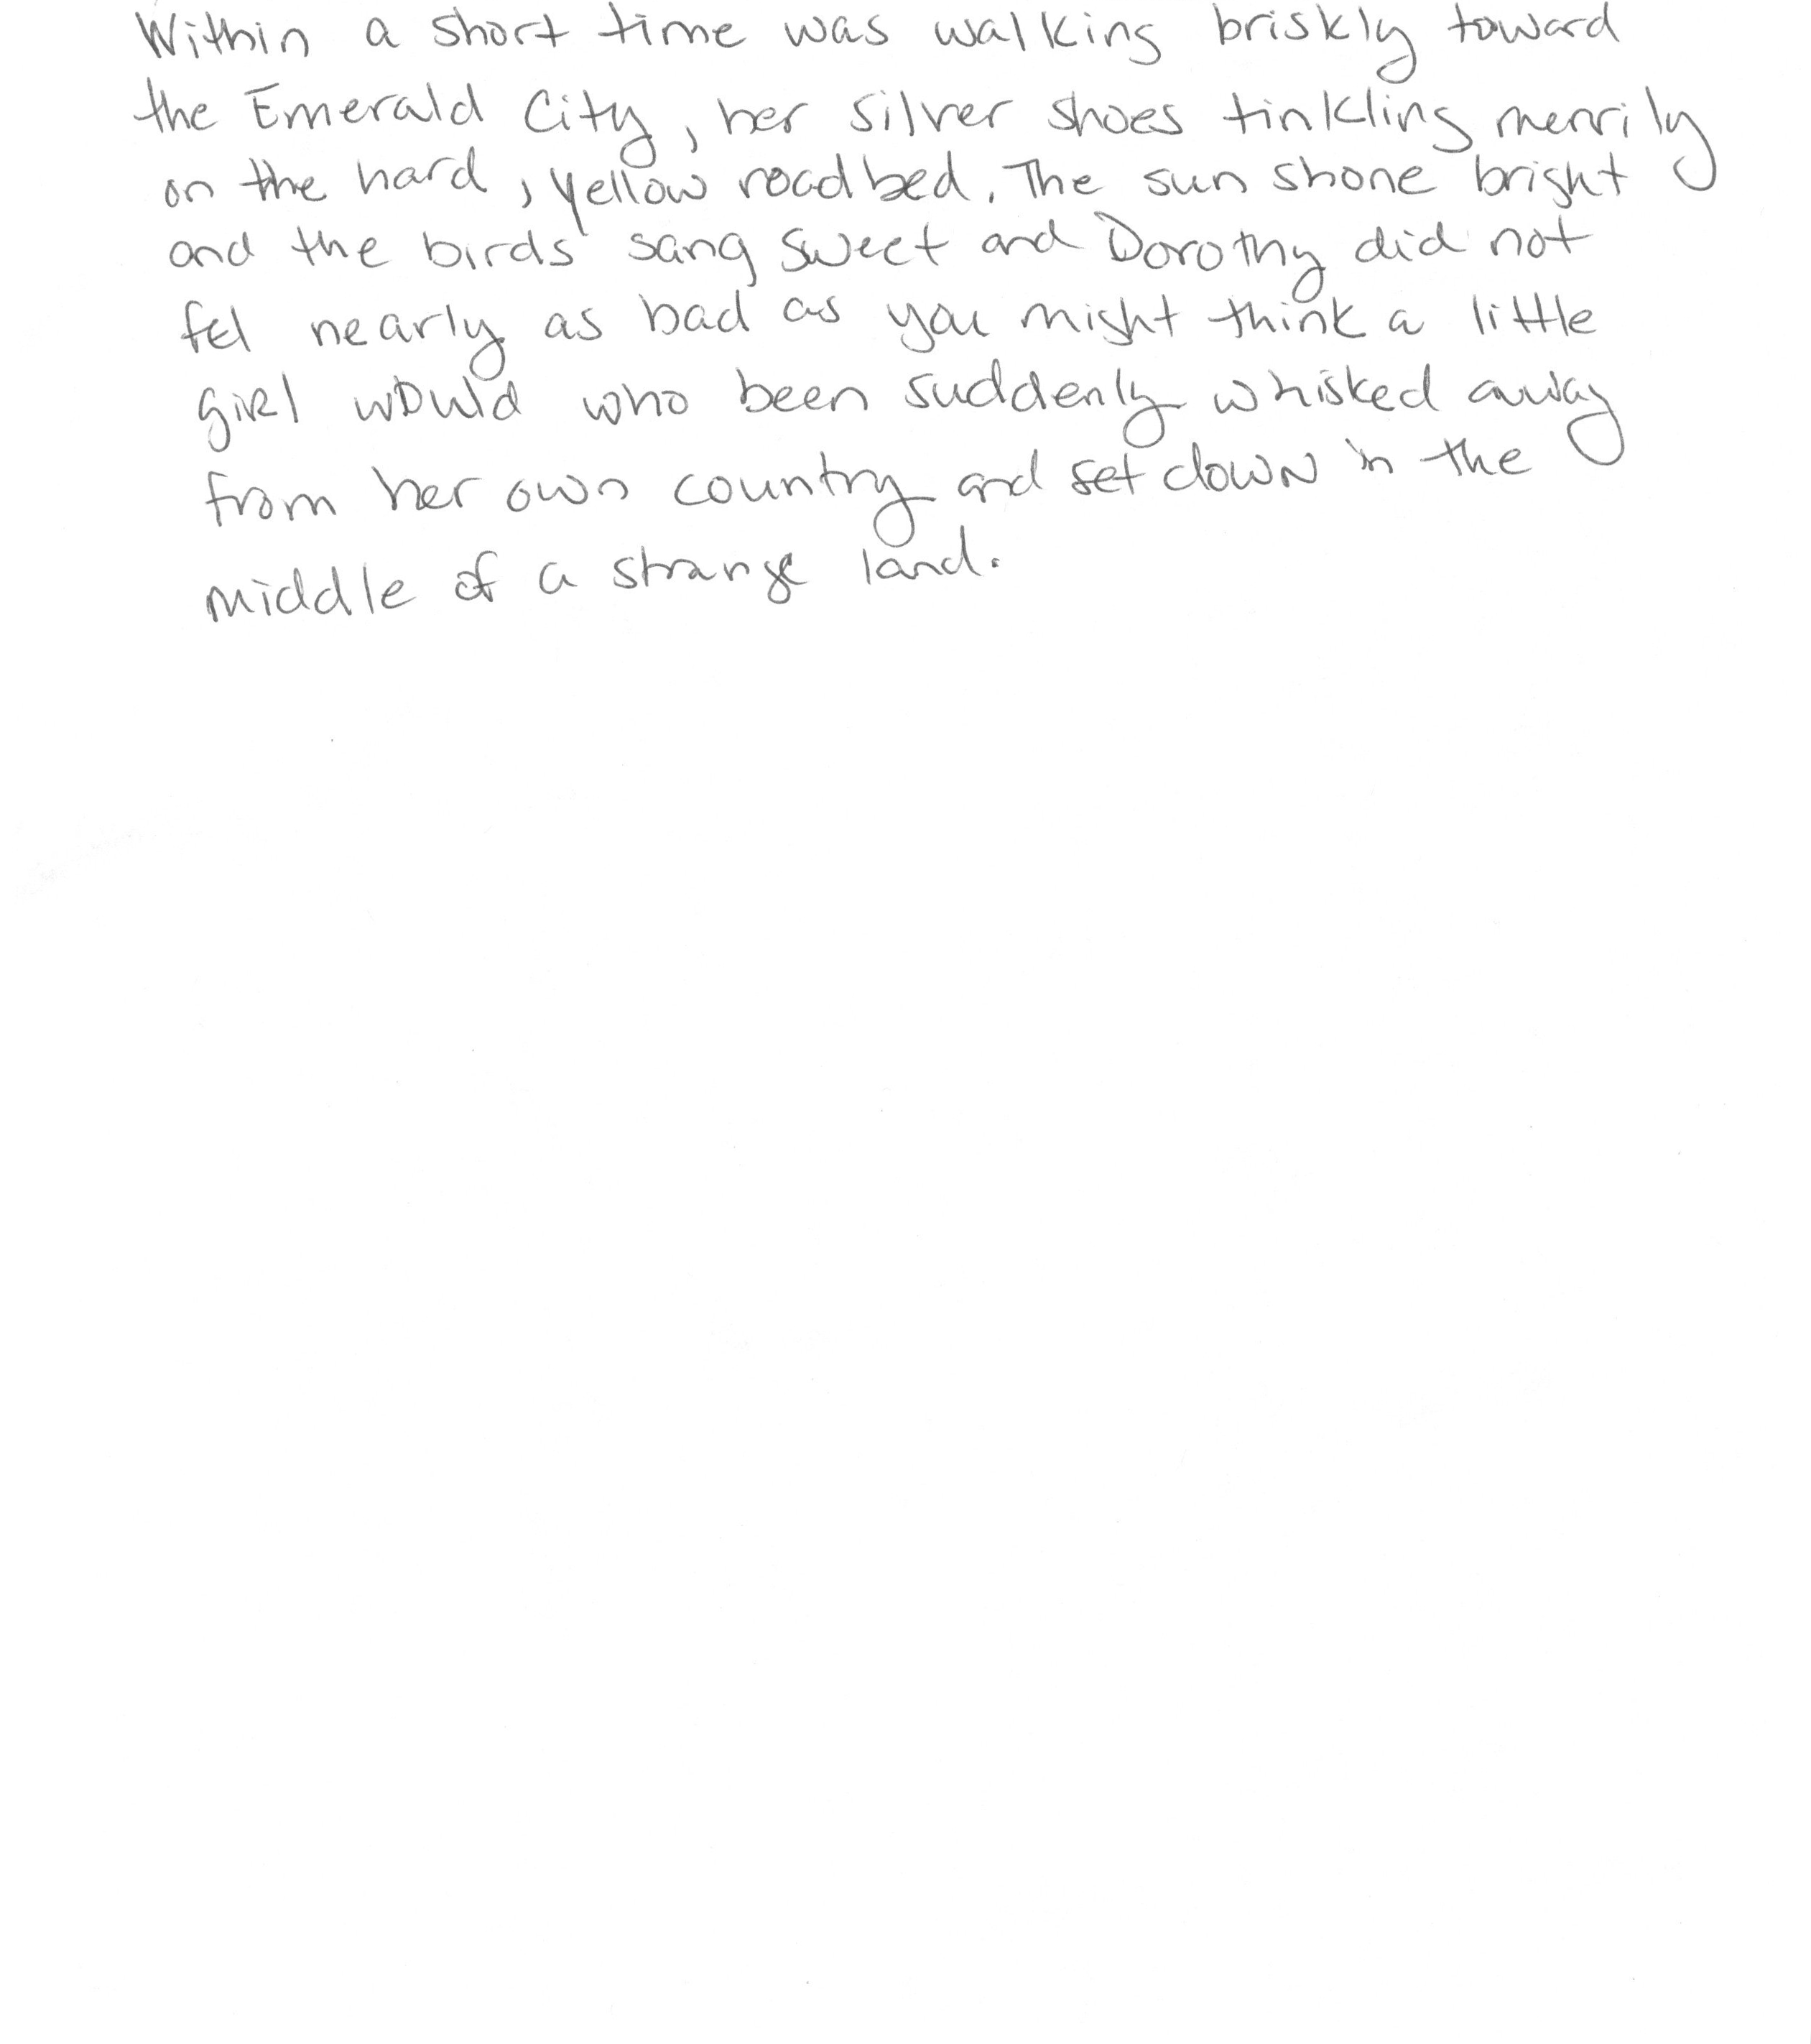 Within a short time was walking briskly toward
the Emerald City, her silver shoes tinkling merrily
on the hard, yellow roadbed. The sun shone bright
and the birds sang sweet and Dorothy did not
fel nearly as bad as you might think a little
girl would who been suddenly whisked away
from her own country and set down in the
middle of a strange land.